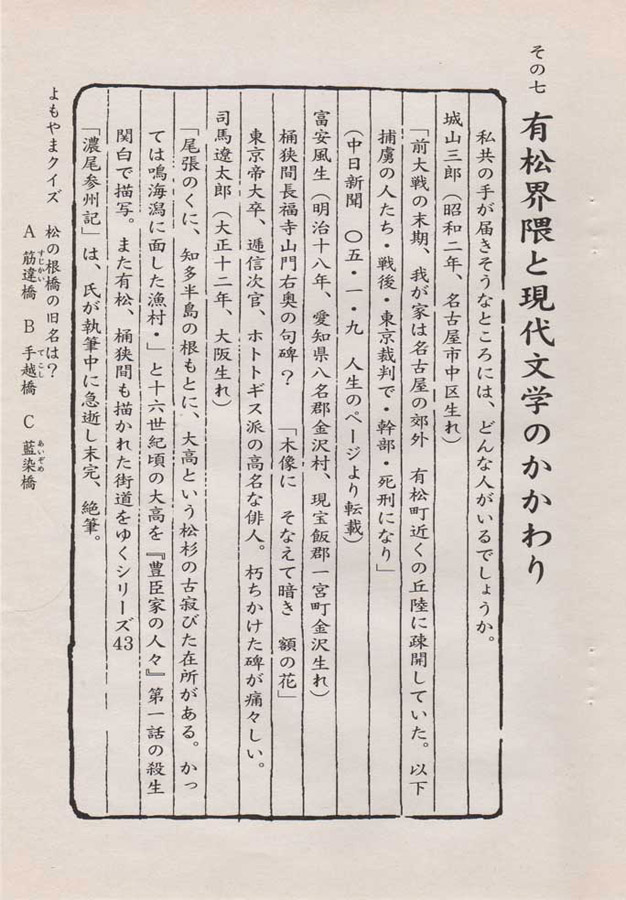 その七 有松界隈と現代文学のかかわり
私共の手が届きそうなところには、どんな人がいるでしょうか。
城山三郎（昭和二年、名古屋市中区生れ）
「前大戦の末期、我が家は名古屋の郊外 有松町近くの丘陸に疎開していた。以下
捕虜の人たち・戦後・東京裁判で・幹部・死刑になり」
（中日新聞 〇五・一・九 人生のページより転載）
富安風生（明治十八年、愛知県八名郡金沢村、現宝飯郡一宮町金沢生れ）
桶狭間長福寺山門右奥の句碑？ 「木像に そなえて暗き 額の花」
東京帝大卒、逓信次官、ホトトギス派の高名な俳人。朽ちかけた碑が痛々しい。
司馬遼太郎（大正十二年、大阪生れ）
「尾張のくに、知多半島の根もとに、大高という松杉の古寂びた在所がある。かっ
ては鳴海潟に面した漁村・」と十六世紀頃の大高を『豊臣家の人々』第一話の殺生
関白で描写。また有松、桶狭間も描かれた街道をゆくシリーズ43
「濃尾参州記」は、氏が執筆中に急逝し末完、絶筆。
よもやまクイズ 松の根橋の旧名は？
A 筋違橋 B 手越橋 C 藍染橋
すじかい てこし あいぞめ